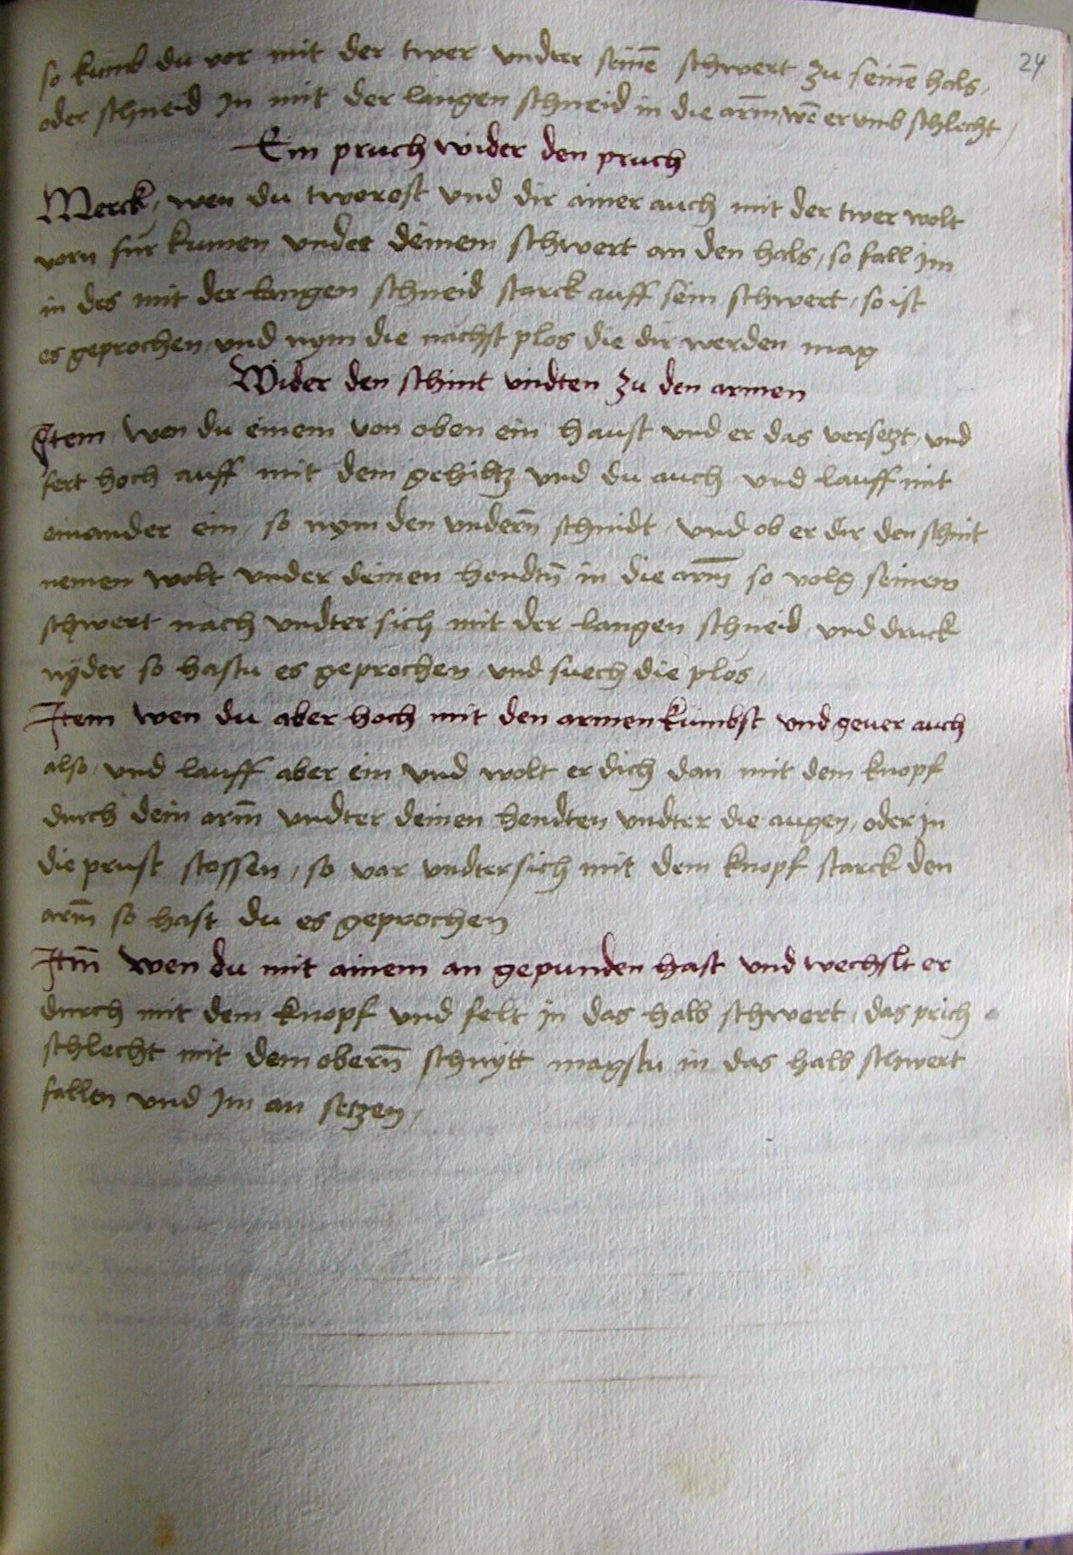 24
so kumb du vor mit der twer undter seinē schwert zu seinē hals,
oder schneid In mit der langen schneid in die arm̄ wē er umb schlecht /
Ein pruch wider den pruch
Merck, wen du twerest und dir ainer auch mit der twer wolt
vorn für kumen under deinem schwert an den hals, so fall im
in des mit der langen schneid starck auff sein schwert, so ist
es geprochen und nym die nachst plos die dir werden mag
Wider den schnit undten zu den armen
Item, wen du einem von oben ein haust und er das versetzt, und
fert hoch auff mit dem gehiltz und du auch und lauff mit
einander ein, so nym den undern̄ schnidt, und ob er dir den schnit
nemen wolt under deinen hendtn̄ in die arm̄ so volg seinem
schwert nach undtersich mit der langen schneid, und druck
nyder so hastu es geprochen und suech die plos,
Item wen du aber hoch mit den armen kumbst und gener auch
also, und lauff aber ein und wolt er dich dan mit dem knopf
durch dein arm̄ undter deinen hendten undter die augen, oder in
die prust stossen, so var undtersich mit dem knopf starck den
arm̄ so hast du es geprochen
Itm̄ wen du mit ainem an gepunden hast und wechslt er
durch mit dem knopf und felt in das halb schwert, das prich
schlecht mit dem obern̄ schnytt magstu in das halb schwert
fallen und Im an setzen,